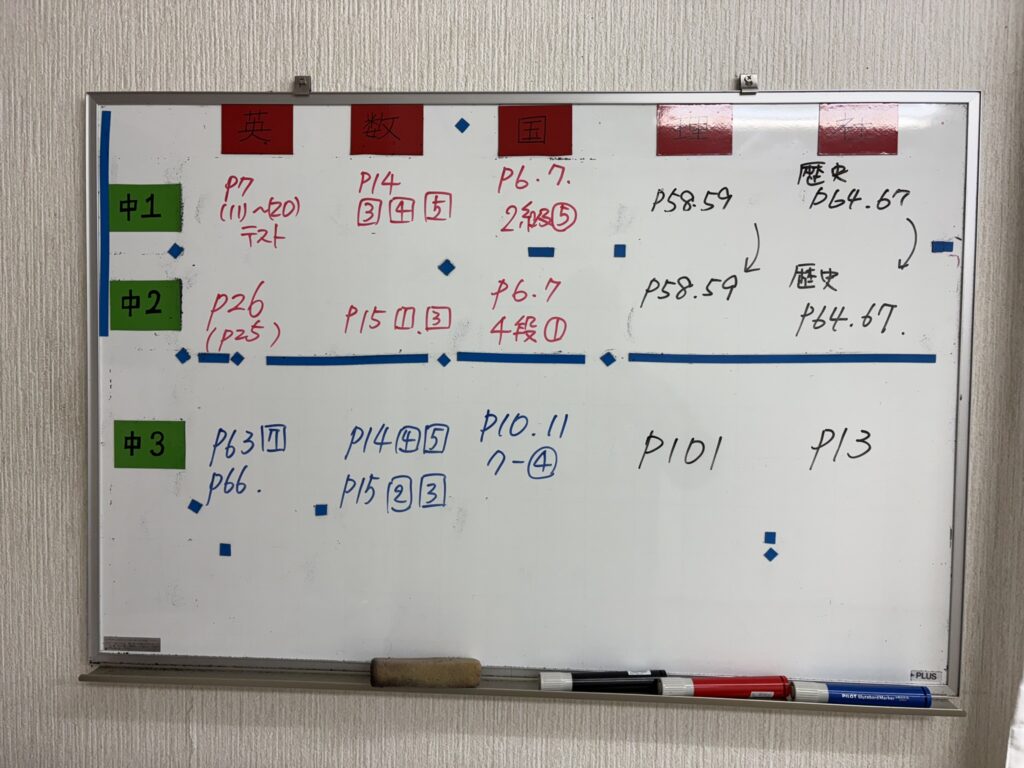 英 数 国 理 社
中1
p7
(11)~(20)
テスト
p14
3 4 5
p6.7.
2級⑤
p58.59
歴史
p64.67
中2
p26
(p25)
p15 1. 3
p6.7
4段①
p58.59
歴史
p64.67.
中3
p63 7
p66.
p14 4 5
p15 2 3
p10.11
ワー④
p101
p13
PLUS
PILOT